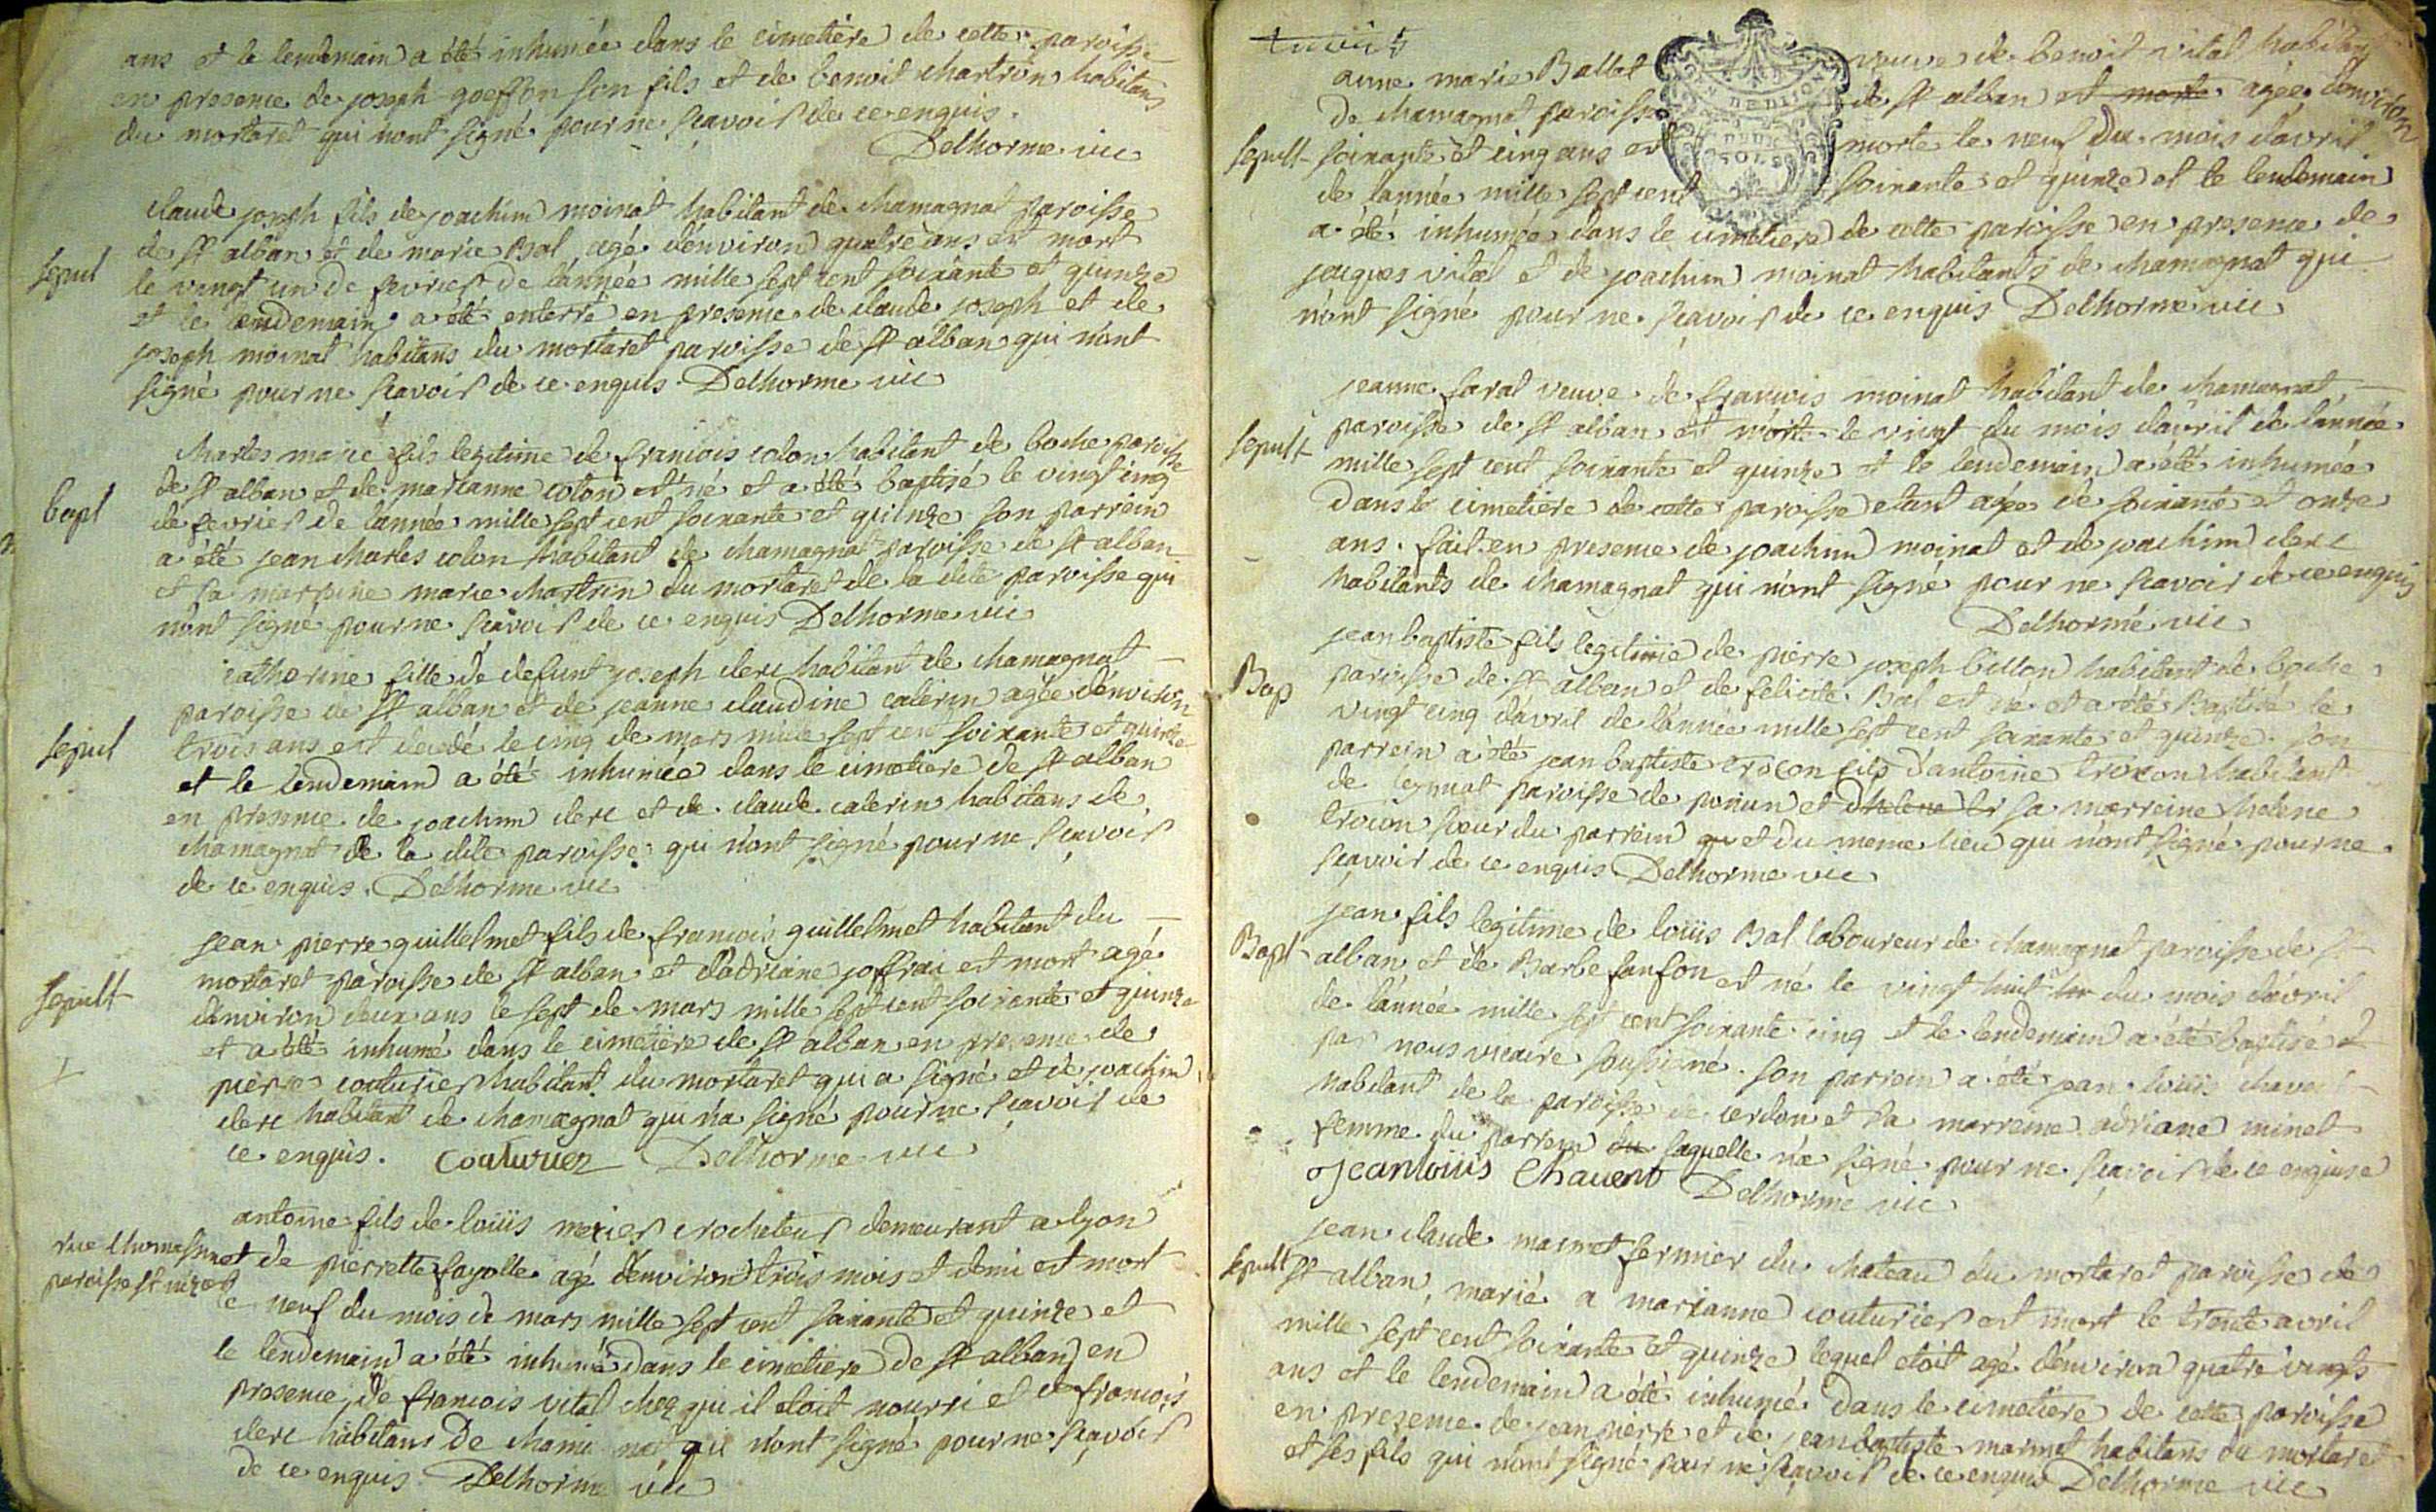 ans et le lendemain a été inhumée dans le cimetière de cette paroisse
en presence de joseph goeffon son fils et de benoit chartron habitans
du mortaret qui nont signé pour ne sçavoir de ce enquis.
Delhorme vic
claude joseph fils de joachim moinat habitant de chamagnat paroisse
de st alban et de marie Bal agé denviron quatre ans est mort
sepul
le vingt un de fevrier de lannée mille sept cent soixante et quinze
et le lendemain a été enterré en presence de claude joseph et de
joseph moinat habitans du mortaret paroisse de st alban qui nont
signé pour ne sçavoir de ce enquis. Delhorme vic
Charles marie fils legitime de francois colon habitant de boche paroisse
de st alban et de marianne colon est né et a été baptisé le vingt cinq
bapt
de fevrier de lannée mille sept cent soixante et quinze son parrein
a été jean charles colon habitant de chamagnat paroisse de st alban
et sa marreine marie chartrin du mortaret de la dite paroisse qui
nont signé pour ne sçavoir de ce enquis Delhorme vic
catherine fille de defunt joseph clerc habitant de chamagnat
paroisse de st alban et de jeanne claudine caterin agée denviron
sepul
trois ans est decedé le cinq de mars mille sept cent soixante et quinze
et le lendemain a été inhumée dans le cimetiere de st alban
en presence de joachim clerc et de claude caterin habitans de
chamagnat de la dite paroisse qui nont signé pour ne sçavoir
de ce enquis. Delhorme vic
jean pierre guillelmet fils de francois guillelmet habitant du
mortaret paroisse de st alban et dadriane joffrai est mort agé
sepult
denviron deux ans le sept de mars mille sept cent soixante et quinze
et a été inhumé dans le cimetière de st alban en presence de
pierre couturier habitant du mortaret qui a signé et de joachim
clerc habitant de chamagnat qui na signé pour ne sçavoir de
ce enquis. Couturier Delhorme vic
antoine fils de louis merier crocheteur demeurant a lyon
rue thomassin
et de pierrette fayolle agé denviron trois mois et demi est mort
paroisse st nizier
le neuf du mois de mars mille sept cent soixante et quinze et
le lendemain a été inhumé dans le cimetiere de st alban en
presence de francois vital chez qui il etoit nourri et de francois
clerc habitans de qui nont signé pour ne sçavoir
de ce enquis. Delhorme vic
anne marie Ballat veuve de benoit vital habitant
de chamagnat paroisse de st alban est morte agée denviron
sepult
soixante et cinq ans est morte le neuf du mois davril
de lannée mille sept cent soixante et quinze et le lendemain
a été inhumée dans le cimetiere de cette paroisse en presence de
jacques vital et de joachim moinat habitants de chamagnat qui
nont signé pour ne sçavoir de ce enquis Delhorme vic
jeanne saral veuve de francois moinat habitant de chamagnat
paroisse de st alban est morte le vingt du mois davril de lannée
sepult
mille sept cent soixante et quinze et le lendemain a été inhumée
dans le cimetiere de cette paroisse etant agée de soixante et onze
ans. fait en presence de joachim moinat et de joachim clerc
habitants de chamagnat qui nont signé pour ne sçavoir de ce enquis
Delhorme vic
jean baptiste fils legitime de pierre joseph billon habitant de boche
Bap
paroisse de st alban et de felicité Bal est né et a été Baptisé le
vingt cinq davril de lannée mille sept cent soixante et quinze. son
parrein a été jean baptiste trocon fils dantoine trocon habitant
de paroisse de et dhelene tr sa marreine helene
trocon soeur du parrein qu et du meme lieu qui nont signé pour ne
sçavoir de ce enquis Delhorme vic
jean fils legitime de louis Bal laboureur de chamagnat paroisse de st
Bapt
alban et de Barbe sanfon est né le vingt huit du mois davril
de lannée mille sept cent soixante cinq et le lendemain a été baptisé
par nous vicaire soussigné. son parrein a été jean louis chavent
habitant de la paroisse de cerdon et sa marreine adriane minet
femme du parrein du laquelle na signé pour ne sçavoir de ce enquise
jean louis Chavent Delhorme vic
jean claude marmet fermier du chateau du mortaret paroisse de
sepult
st alban, marié a marianne couturier est mort le trente avril
mille sept cent soixante et quinze lequel etoit agé denviron quatre vingts
ans et le lendemain a été inhumé dans le cimetiere de cette paroisse
en presence de jean pierre et de jean baptiste marmet habitans du mortaret
et ses fils qui nont signé pour ne sçavoir de ce enquis Delhorme vic